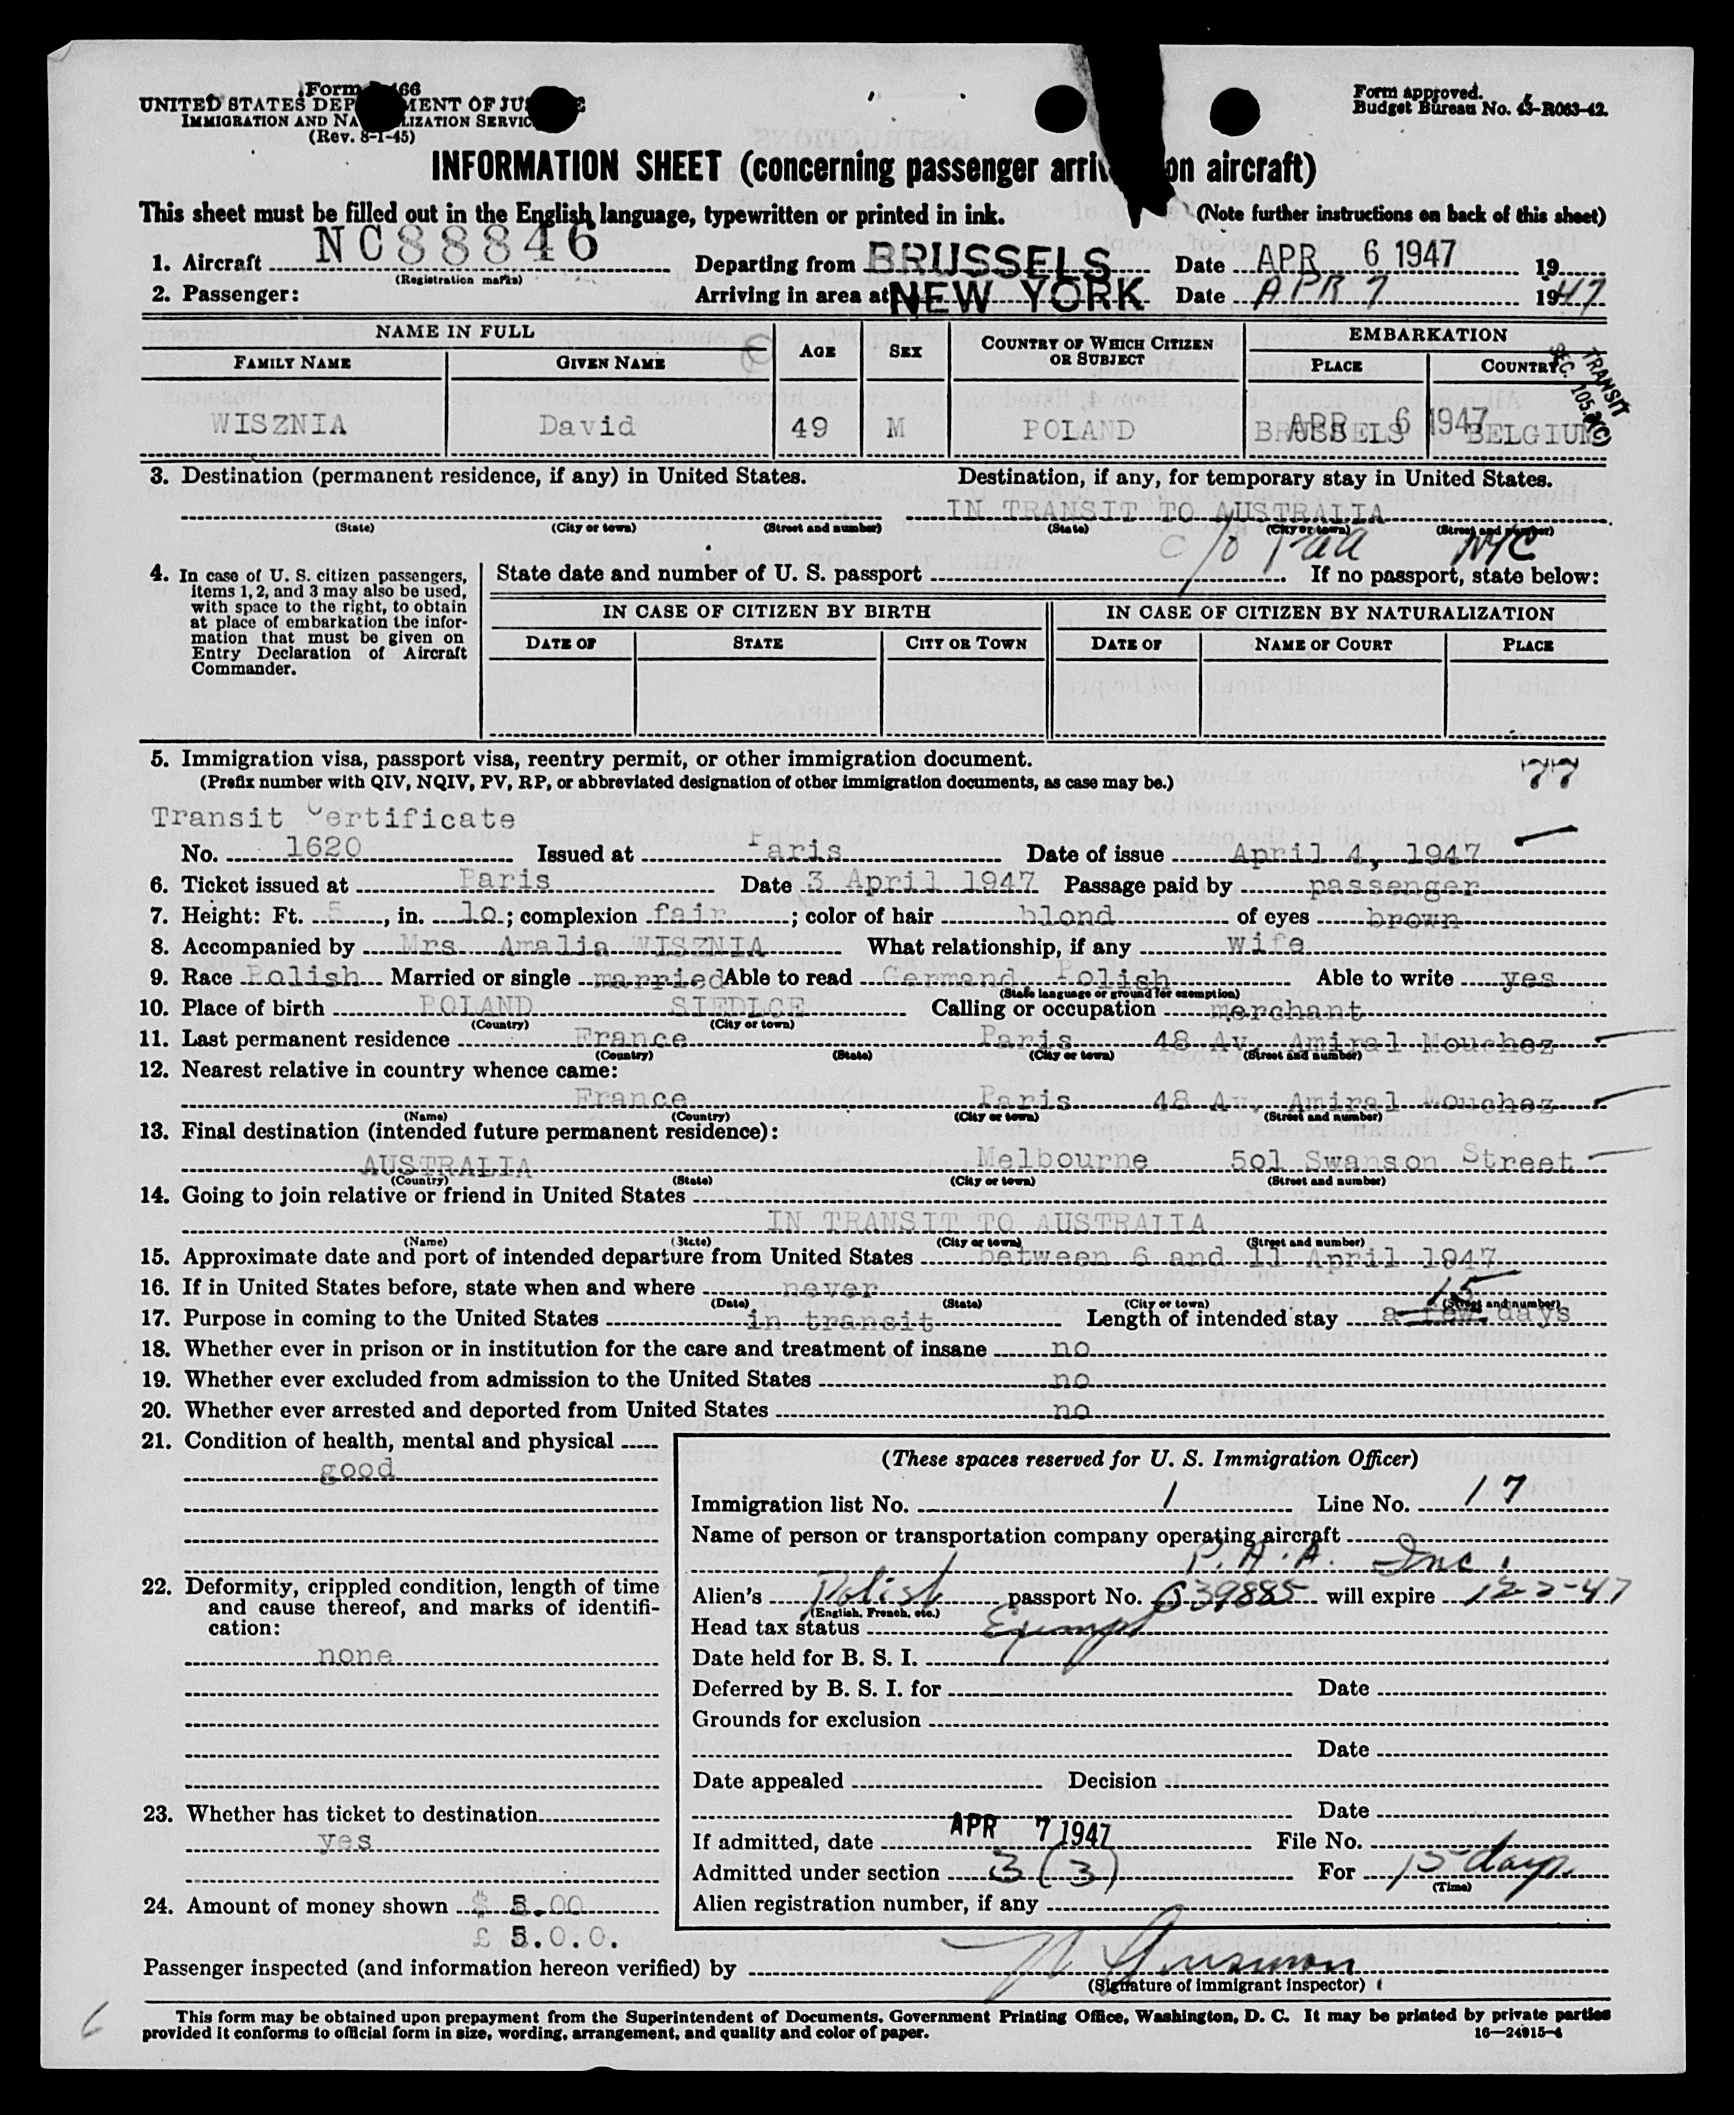 Form 466
UNITED STATES DEPARTMENT OF JUSTICE
IMMIGRATION AND NATURALIZATION SERVICE
(Rev. 8-1-45)
Form approved.
Budget Bureau No. 43-R063-42.
INFORMATION SHEET (concerning passenger arriving on aircraft)
This sheet must be filled out in the English language, typewritten or printed in ink. (Note further instructions on back of this sheet)
1. Aircraft NC88846 Departing from BRUSSELS Date APR 6 1947 19
(Registration marks)
2. Passenger: Arriving in area at NEW YORK Date APR 7 1947
NAME IN FULL AGE SEX COUNTRY OF WHICH CITIZEN OR SUBJECT EMBARKATION
FAMILY NAME GIVEN NAME PLACE COUNTRY
TRANSIT
WISZNIA David 49 M POLAND BRUSSELS BELGIUM
APR 6 1947
3. Destination (permanent residence, if any) in United States. Destination, if any, for temporary stay in United States.
IN TRANSIT TO AUSTRALIA
(State) (City or town) (Street and number) (State) (City or town) (Street and number)
c/o Paa NYC
4. In case of U. S. citizen passengers, items 1, 2, and 3 may also be used, with space to the right, to obtain at place of embarkation the information that must be given on Entry Declaration of Aircraft Commander.
State date and number of U. S. passport If no passport, state below:
IN CASE OF CITIZEN BY BIRTH IN CASE OF CITIZEN BY NATURALIZATION
DATE OF STATE CITY OR TOWN DATE OF NAME OF COURT PLACE
5. Immigration visa, passport visa, reentry permit, or other immigration document.
(Prefix number with QIV, NQIV, PV, RP, or abbreviated designation of other immigration documents, as case may be.)
77
Transit Certificate
No. 1620 Issued at Paris Date of issue April 4, 1947
6. Ticket issued at Paris Date 3 April 1947 Passage paid by passenger
7. Height: Ft. 5, in. 10; complexion fair; color of hair blond of eyes brown
8. Accompanied by Mrs Amalia WISZNIA What relationship, if any wife
9. Race Polish Married or single married Able to read Germand, Polish Able to write yes
(State language or ground for exemption)
10. Place of birth POLAND SIEDLCE Calling or occupation merchant
(Country) (City or town)
11. Last permanent residence France Paris 48 Av. Amiral Mouchez
(Country) (State) (City or town) (Street and number)
12. Nearest relative in country whence came:
France Paris 48 Av. Amiral Mouchez
(Name) (Country) (City or town) (Street and number)
13. Final destination (intended future permanent residence):
AUSTRALIA Melbourne 501 Swanson Street
(Country) (State) (City or town) (Street and number)
14. Going to join relative or friend in United States
IN TRANSIT TO AUSTRALIA
(Name) (State) (City or town) (Street and number)
15. Approximate date and port of intended departure from United States between 6 and 11 April 1947
16. If in United States before, state when and where never
(Date) (State) (City or town) (Street and number)
17. Purpose in coming to the United States in transit Length of intended stay a few days 15
18. Whether ever in prison or in institution for the care and treatment of insane no
19. Whether ever excluded from admission to the United States no
20. Whether ever arrested and deported from United States no
21. Condition of health, mental and physical
good
22. Deformity, crippled condition, length of time and cause thereof, and marks of identification:
none
23. Whether has ticket to destination
yes
24. Amount of money shown $ 5.00
£ 5.0.0.
(These spaces reserved for U. S. Immigration Officer)
Immigration list No. 1 Line No. 17
Name of person or transportation company operating aircraft
P.A.A. Inc.
Alien's Polish passport No. 639885 will expire 12-2-47
(English, French, etc.)
Head tax status Exempt
Date held for B. S. I.
Deferred by B. S. I. for Date
Grounds for exclusion
Date
Date appealed Decision
Date
If admitted, date APR 7 1947 File No.
Admitted under section 3(3) For 15 days
(Time)
Alien registration number, if any
Passenger inspected (and information hereon verified) by
(Signature of immigrant inspector)
This form may be obtained upon prepayment from the Superintendent of Documents, Government Printing Office, Washington, D. C. It may be printed by private parties
provided it conforms to official form in size, wording, arrangement, and quality and color of paper. 16—24915-4